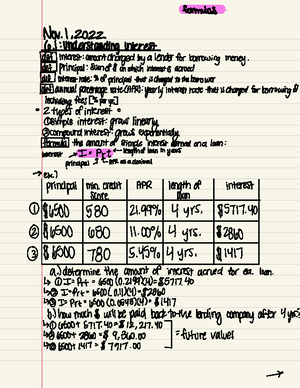 formulas
Nov. 1, 2022
6.1: Understanding Interest
def Interest: amount charged by a lender for borrowing money.
def Principal: sum of $ on which interest is accrued
def Interest rate: % of principal that is charged to the borrower
def annual percentage rate (APR): yearly interest rate that is charged for borrowing $
including fees [% per yr]
2 types of interest
① simple interest: grows linearly
② compound interest: grows exponentially
formula the amount of simple interest earned on a loan:
interest I = Prt length of loan in years
principal APR as a decimal
ex:)
principal min. credit score APR length of loan interest
① $6500 580 21.99% 4 yrs. $5717.40
② $6500 680 11.00% 4 yrs. $2860
③ $6500 780 5.45% 4 yrs. $1417
a.) determine the amount of interest accrued for ea. loan.
↳ ① I = Prt = 6500(0.2199)(4) = $5717.40
↳ ② I = Prt = 6500(0.11)(4) = $2860
↳ ③ I = Prt = 6500(0.0545)(4) = $1417
b.) how much $ will be paid back to the lending company after 4 yrs?
↳ ① 6500 + 5717.40 = $12,217.40
↳ ② 6500 + 2860 = $9,360.00 = future values
↳ ③ 6500 + 1417 = $7917.00